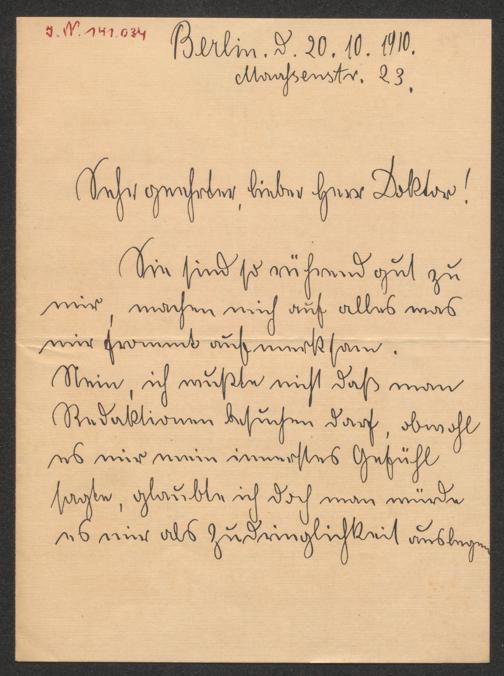 J.N. 141.034
Berlin. d. 20. 10. 1910.
Maaßenstr. 23.
Sehr geehrter, lieber Herr Doktor!
Sie sind so rührend gut zu
mir, machen mich auf alles was
mir frommt aufmerksam.
Nein, ich wußte nicht daß man
Redaktionen besuchen darf, obwohl
es mir mein innerstes Gefühl
sagte, glaubte ich doch man würde
es mir als Zudringlichkeit auslegen